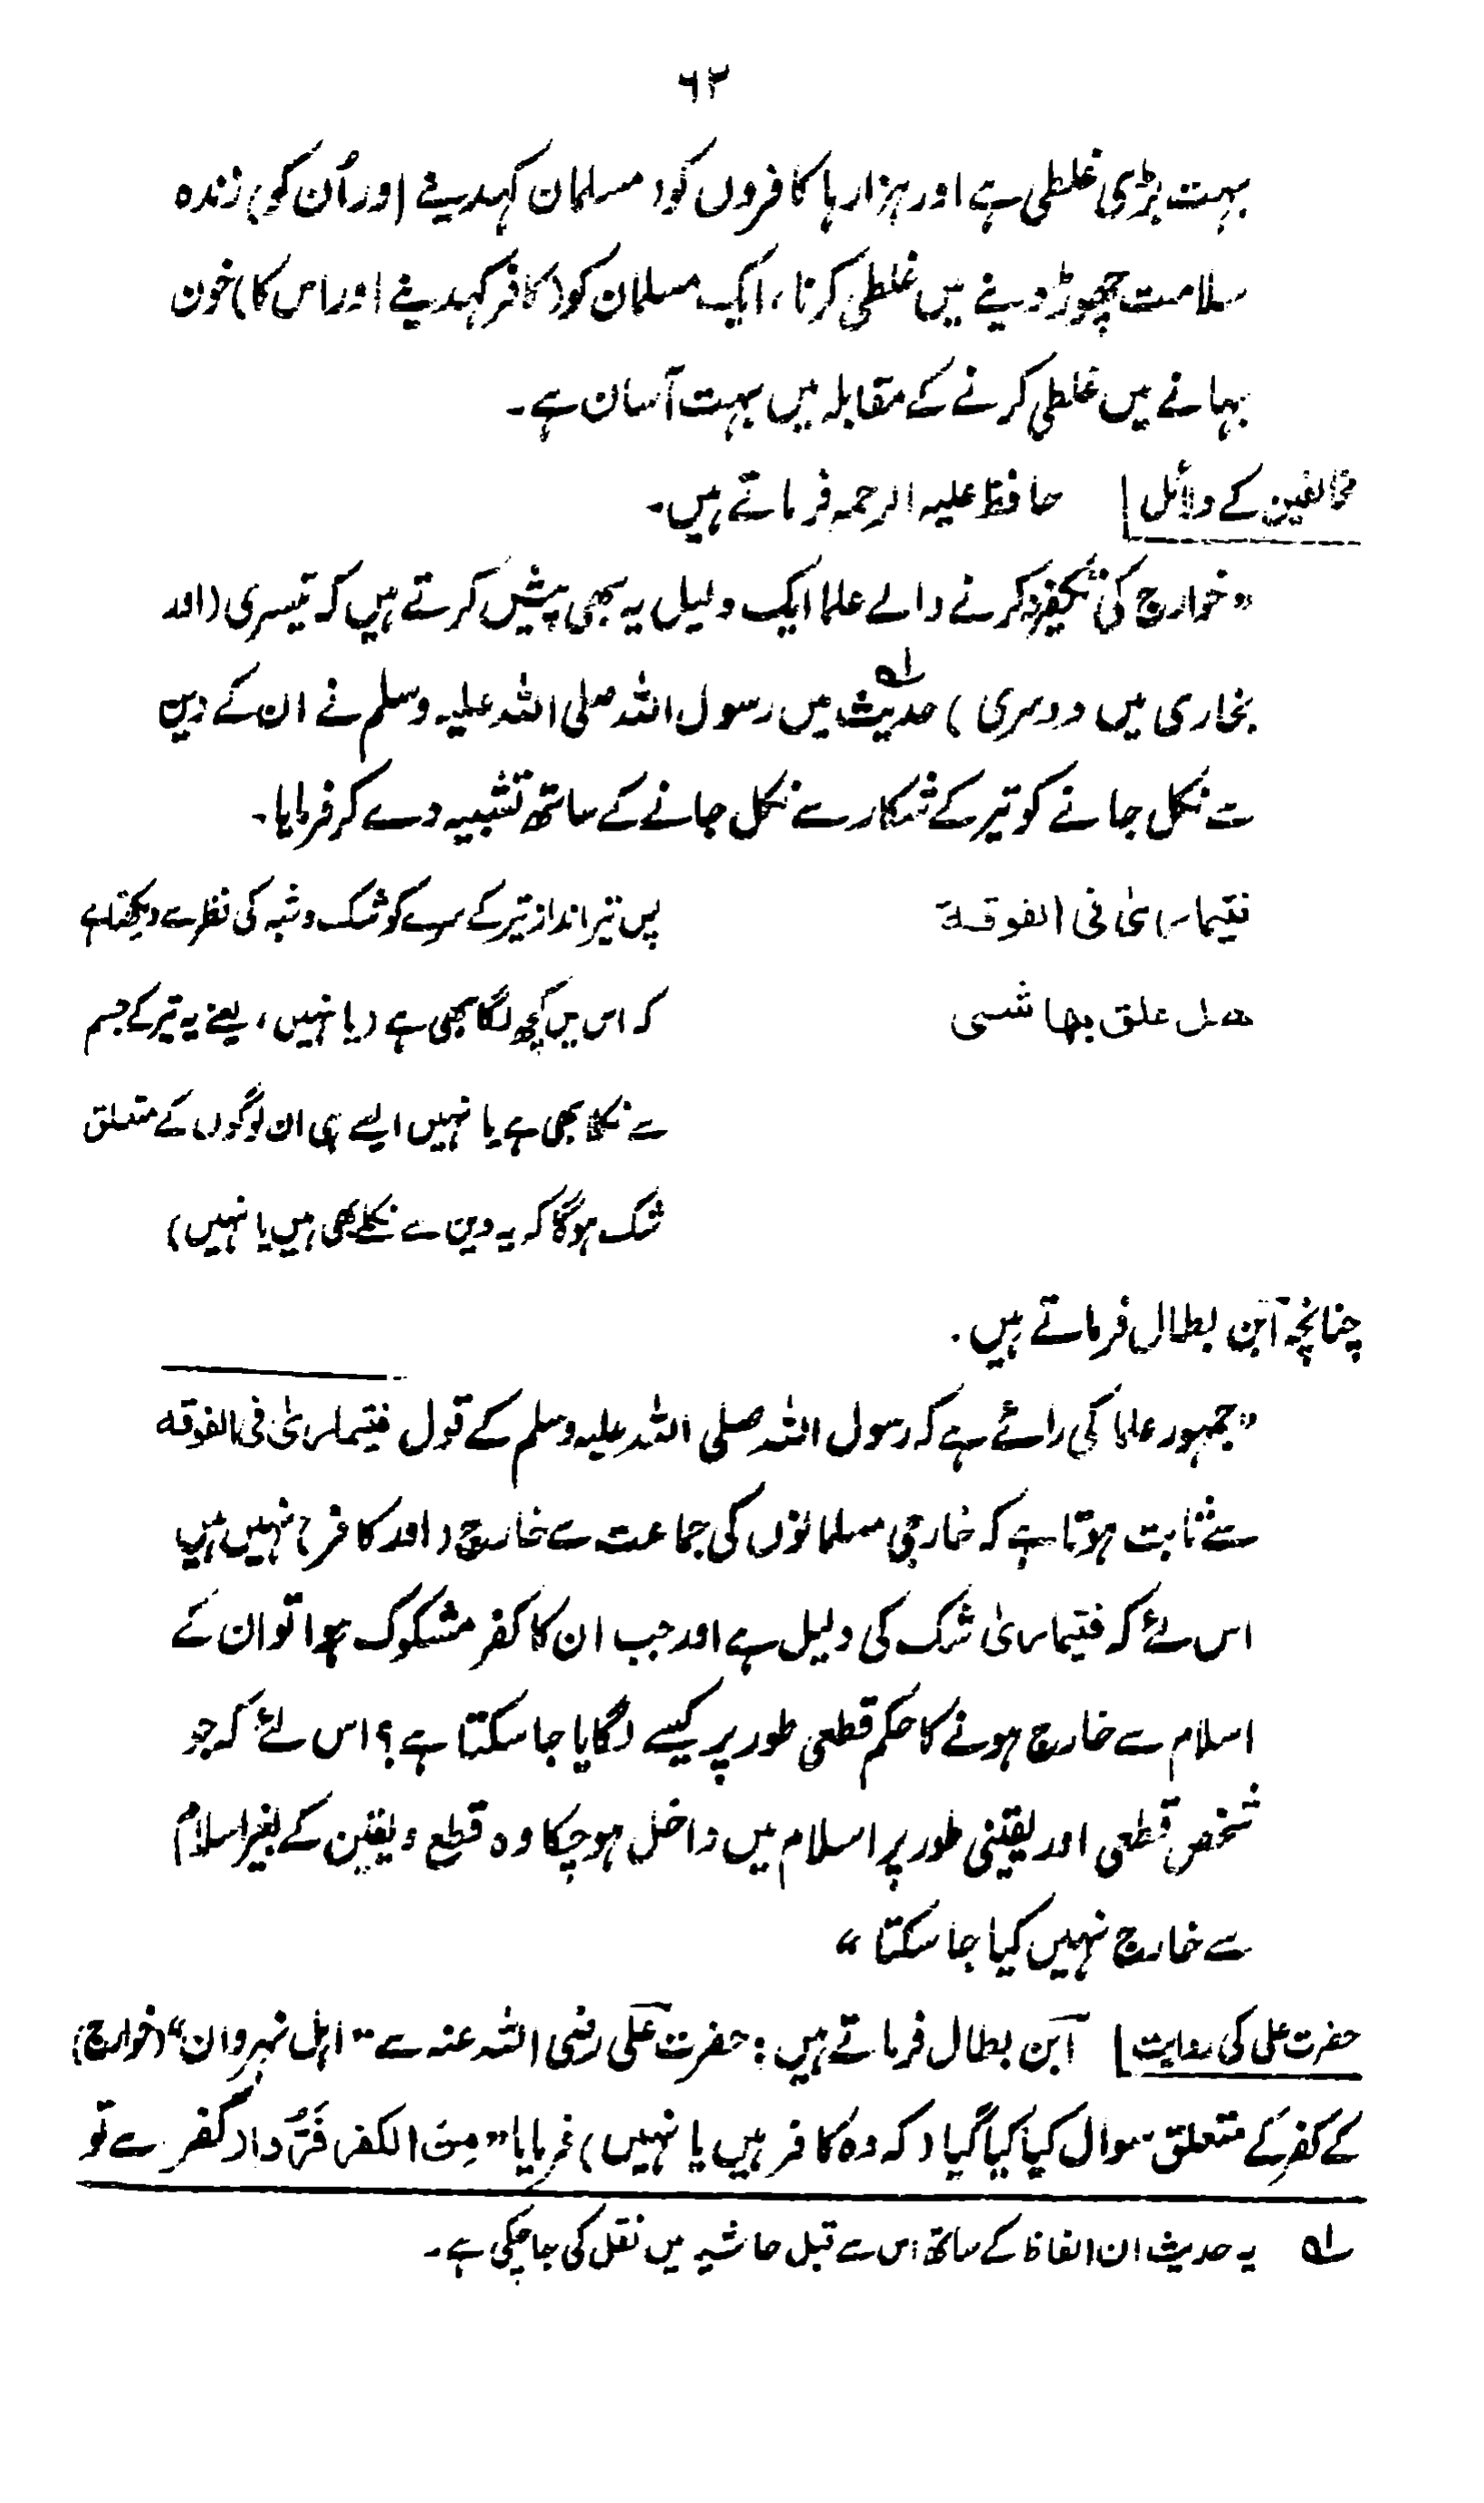 ۶۲
بہت بڑی غلطی ہے اور ہزارہا کافروں کو (مسلمان کہدینے (اور اُن کو) زندہ
سلامت چھوڑ دینے میں غلطی کرنا، ایک مسلمان کو (کافر کہدینے اور اس کا) خون
بہانے میں غلطی کرنے کے مقابلہ میں بہت آسان ہے۔
مخالفین کے دلائل حافظ علیہ الرحمہ فرماتے ہیں۔
"خوارج کی تکفیر نہ کرنے والے علما ایک دلیل یہ بھی پیش کرتے ہیں کہ تیسری (اور
بخاری میں دوسری) حدیث ؎۱ میں رسول اللہ صلی اللہ علیہ وسلم نے ان کے دین
سے نکل جانے کو تیر کے شکار سے نکل جانے کے ساتھ تشبیہ دے کر فرمایا۔
فیتماریٰ فی الفوقة پس تیر انداز تیر کے سرے کو شک و شبہ کی نظر سے دیکھتا ہے
ھل علق بھا شئ کہ اس میں کچھ لگا بھی ہے (یا نہیں، یعنے یہ تیر کے جسم
سے نکلا بھی ہے یا نہیں ایسے ہی ان لوگوں کے متعلق
شک ہوگا کہ یہ دین سے نکلے بھی ہیں یا نہیں)
چنانچہ ابن بطال فرماتے ہیں۔
"جمہور علما کی رائے ہے کہ رسول اللہ صلی اللہ علیہ وسلم کے قول فیتماریٰ فی الفوقه
سے ثابت ہوتا ہے کہ خارجی مسلمانوں کی جماعت سے خارج (اور کافر) نہیں ہیں
اس لئے کہ فیتماریٰ شک کی دلیل ہے اور جب ان کا کفر مشکوک ہوا تو ان کے
اسلام سے خارج ہونے کا حکم قطعی طور پر کیسے لگایا جا سکتا ہے؟ اس لئے کہ جو
شخص قطعی اور یقینی طور پر اسلام میں داخل ہو چکا وہ قطع و یقین کے بغیر اسلام
سے خارج نہیں کیا جا سکتا"
حضرت علی کی روایت ابن بطال فرماتے ہیں: حضرت علی رضی اللہ عنہ سے "اہل نہروان" (خوارج)
کے کفر کے متعلق سوال کیا گیا (کہ وہ کافر ہیں یا نہیں) فرمایا "مِنَ الکفر فَرُّوا (کفر سے تو
؎۱ یہ حدیث ان الفاظ کے ساتھ اس سے قبل حاشیہ میں نقل کی جا چکی ہے۔